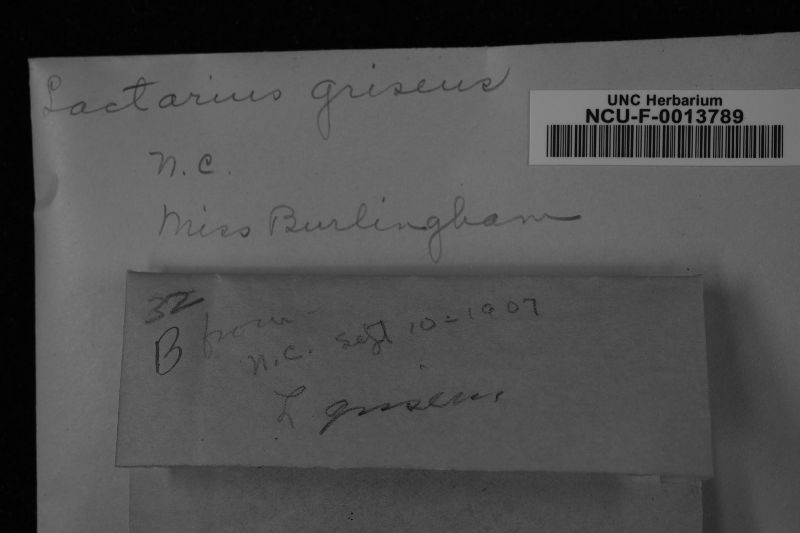 Lactarius griseus
UNC Herbarium
NCU-F-0013789
N.C.
Miss Burlingham
32
B from
N.C. Sept 10-1907
L griseus